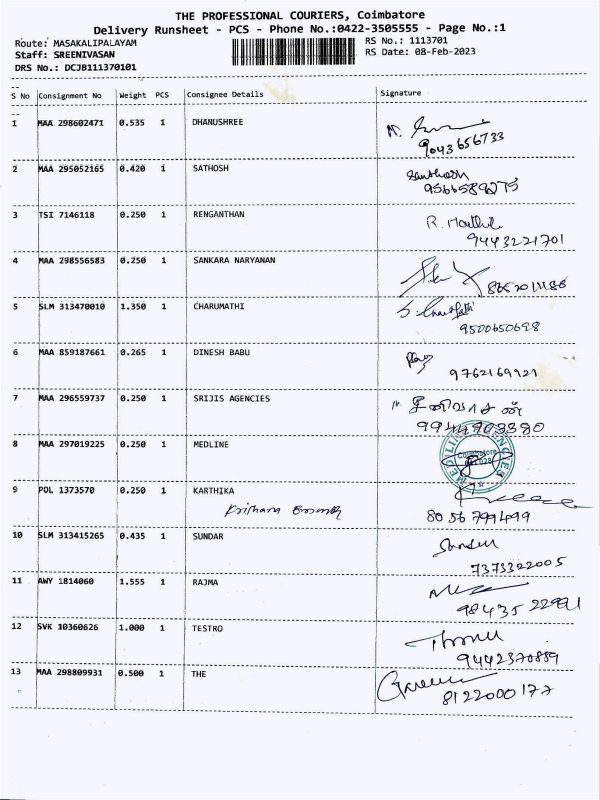 THE PROFESSIONAL COURIERS, Coimbatore
Delivery Runsheet - PCS - Phone No.:0422-3505555 - Page No.:1
Route: MASAKALIPALAYAM RS No.: 1113701
Staff: SREENIVASAN RS Date: 08-Feb-2023
DRS No.: DCJB111370101
S No Consignment No Weight PCS Consignee Details Signature
1 MAA 298602471 0.535 1 DHANUSHREE
9043656733
2 MAA 295052165 0.420 1 SATHOSH Santhosh
9566589275
3 TSI 7146118 0.250 1 RENGANTHAN R.
9443221701
4 MAA 298556583 0.250 1 SANKARA NARYANAN
5 SLM 313470010 1.350 1 CHARUMATHI
9500650698
6 MAA 859187661 0.265 1 DINESH BABU
9762169921
7 MAA 296559737 0.250 1 SRIJIS AGENCIES
9944703380
8 MAA 297019225 0.250 1 MEDLINE MEDLINE AGENCIES Coimbatore
9 POL 1373570 0.250 1 KARTHIKA
8056799499
10 SLM 313415265 0.435 1 SUNDAR
7373322005
11 AWY 1814060 1.555 1 RAJMA
12 SVK 10360626 1.000 1 TESTRO
9442370889
13 MAA 298809931 0.500 1 THE
8122000177